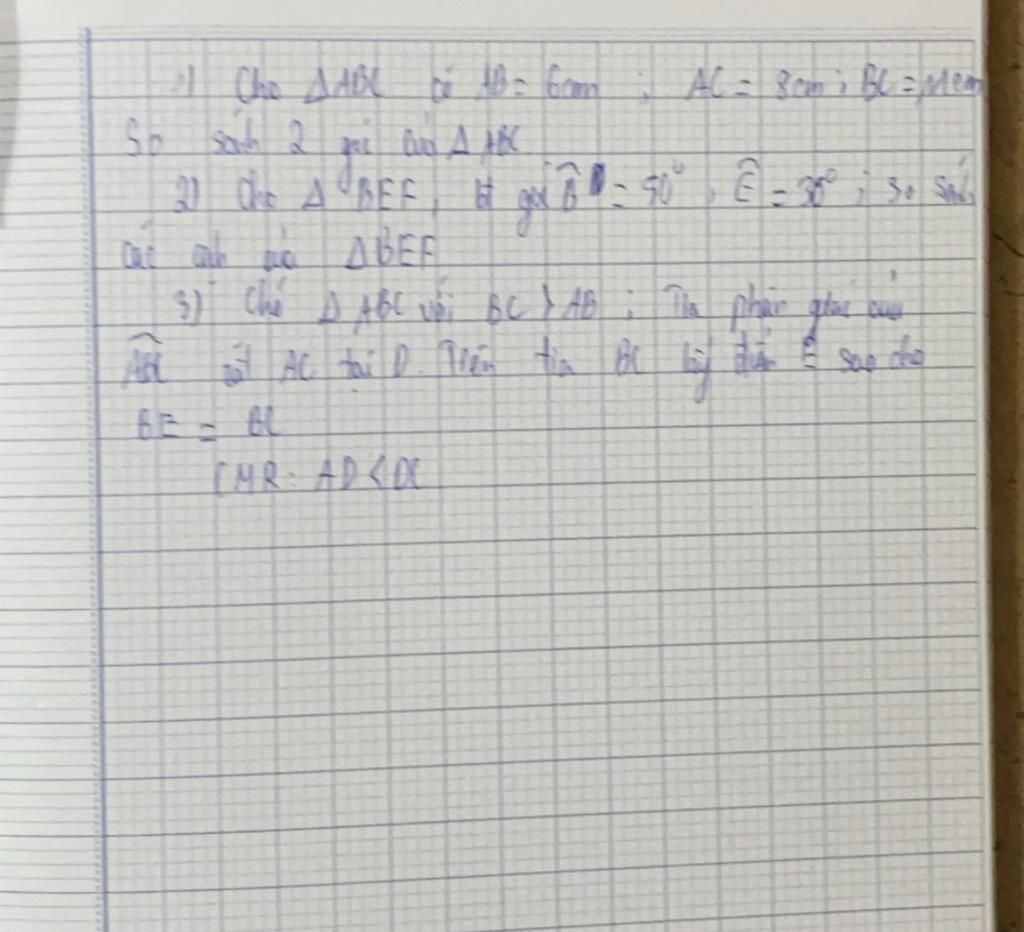 1) Cho ΔABC có AB = 6cm ; AC = 8cm ; BC =
So sánh 2 góc của ΔABC
2) Cho Δ BEF, góc B̂ = 50° , Ê = 30° ; so sánh
các cạnh của ΔBEF
3) Cho Δ ABC với BC > AB ; Tia phân giác của
ABC cắt AC tại D. Trên tia BC lấy điểm E sao cho
BE = BC
CMR: AD < DC